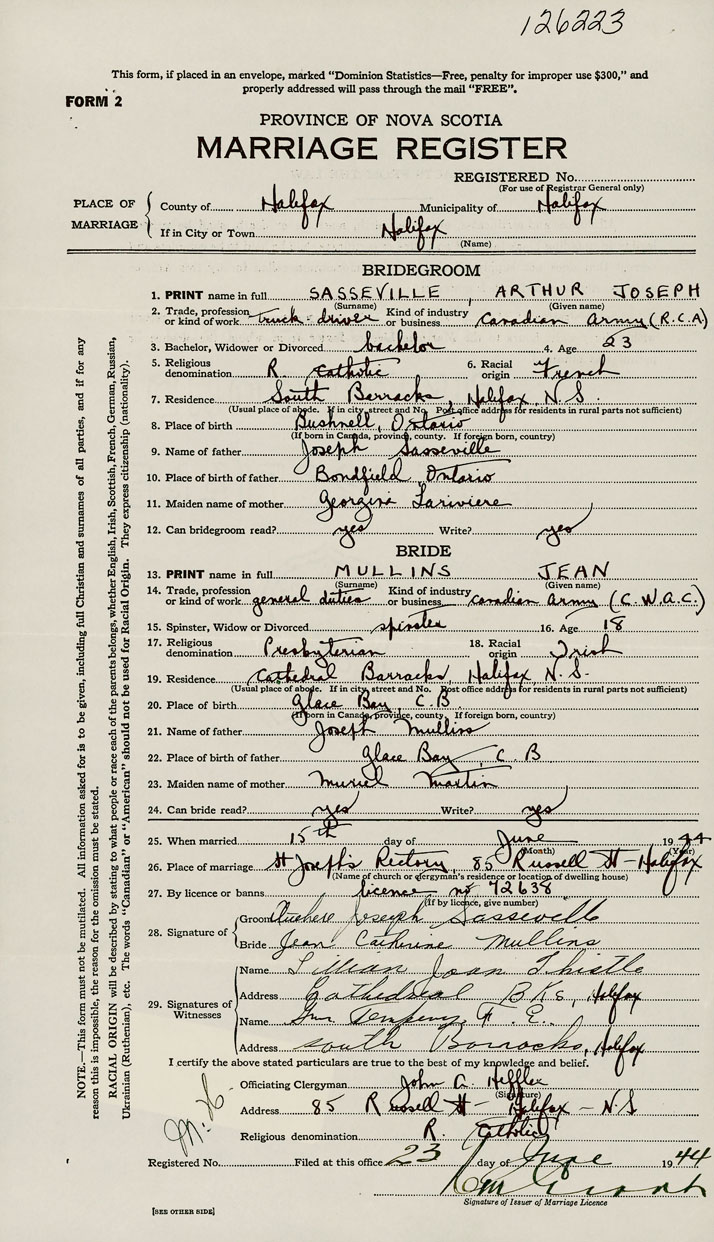 126223
This form, if placed in an envelope, marked "Dominion Statistics—Free, penalty for improper use $300," and
properly addressed will pass through the mail "FREE".
FORM 2
PROVINCE OF NOVA SCOTIA
MARRIAGE REGISTER
REGISTERED No.
(For use of Registrar General only)
PLACE OF MARRIAGE
County of Halifax Municipality of Halifax
If in City or Town Halifax
(Name)
BRIDEGROOM
1. PRINT name in full SASSEVILLE, ARTHUR JOSEPH
(Surname) (Given name)
2. Trade, profession or kind of work truck-driver Kind of industry or business Canadian Army (R.C.A)
3. Bachelor, Widower or Divorced bachelor 4. Age 23
5. Religious denomination R. Catholic 6. Racial origin French
7. Residence South Barracks, Halifax N.S.
(Usual place of abode. If in city, street and No. Post office address for residents in rural parts not sufficient)
8. Place of birth Bushnell, Ontario
(If born in Canada, province, county. If foreign born, country)
9. Name of father Joseph Sasseville
10. Place of birth of father Bondfield Ontario
11. Maiden name of mother Georgina Lariviere
12. Can bridegroom read? yes Write? yes
BRIDE
13. PRINT name in full MULLINS JEAN
(Surname) (Given name)
14. Trade, profession or kind of work general duties Kind of industry or business Canadian Army (C.W.A.C.)
15. Spinster, Widow or Divorced spinster 16. Age 18
17. Religious denomination Presbyterian 18. Racial origin Irish
19. Residence Cathedral Barracks, Halifax N.S.
(Usual place of abode. If in city, street and No. Post office address for residents in rural parts not sufficient)
20. Place of birth Glace Bay, C.B.
(If born in Canada, province, county. If foreign born, country)
21. Name of father Joseph Mullins
22. Place of birth of father Glace Bay, C.B
23. Maiden name of mother Muriel Martin
24. Can bride read? yes Write? yes
25. When married 15th day of June 1944
(Month) (Year)
26. Place of marriage St Joseph's Rectory, 85 Russell St - Halifax
(Name of church or clergyman's residence or location of dwelling house)
27. By licence or banns licence no 72638
(If by licence, give number)
28. Signature of
Groom Joseph Sasseville
Bride Jean Catherine Mullins
29. Signatures of Witnesses
Name Lillian Joan Thistle
Address Cathedral BKs, Halifax
Name F. E.
Address South Barracks, Halifax
I certify the above stated particulars are true to the best of my knowledge and belief.
Officiating Clergyman John A. Heffler
(Signature)
Address 85 Russell St - Halifax - N.S
Religious denomination R. Catholic
Registered No. Filed at this office 23 day of June 1944
Signature of Issuer of Marriage Licence
[SEE OTHER SIDE]
NOTE.—This form must not be mutilated. All information asked for is to be given, including full Christian and surnames of all parties, and if for any
reason this is impossible, the reason for the omission must be stated.
RACIAL ORIGIN will be described by stating to what people or race each of the parents belongs, whether English, Irish, Scottish, French, German, Russian,
Ukrainian (Ruthenian), etc. The words "Canadian" or "American" should not be used for Racial Origin. They express citizenship (nationality).